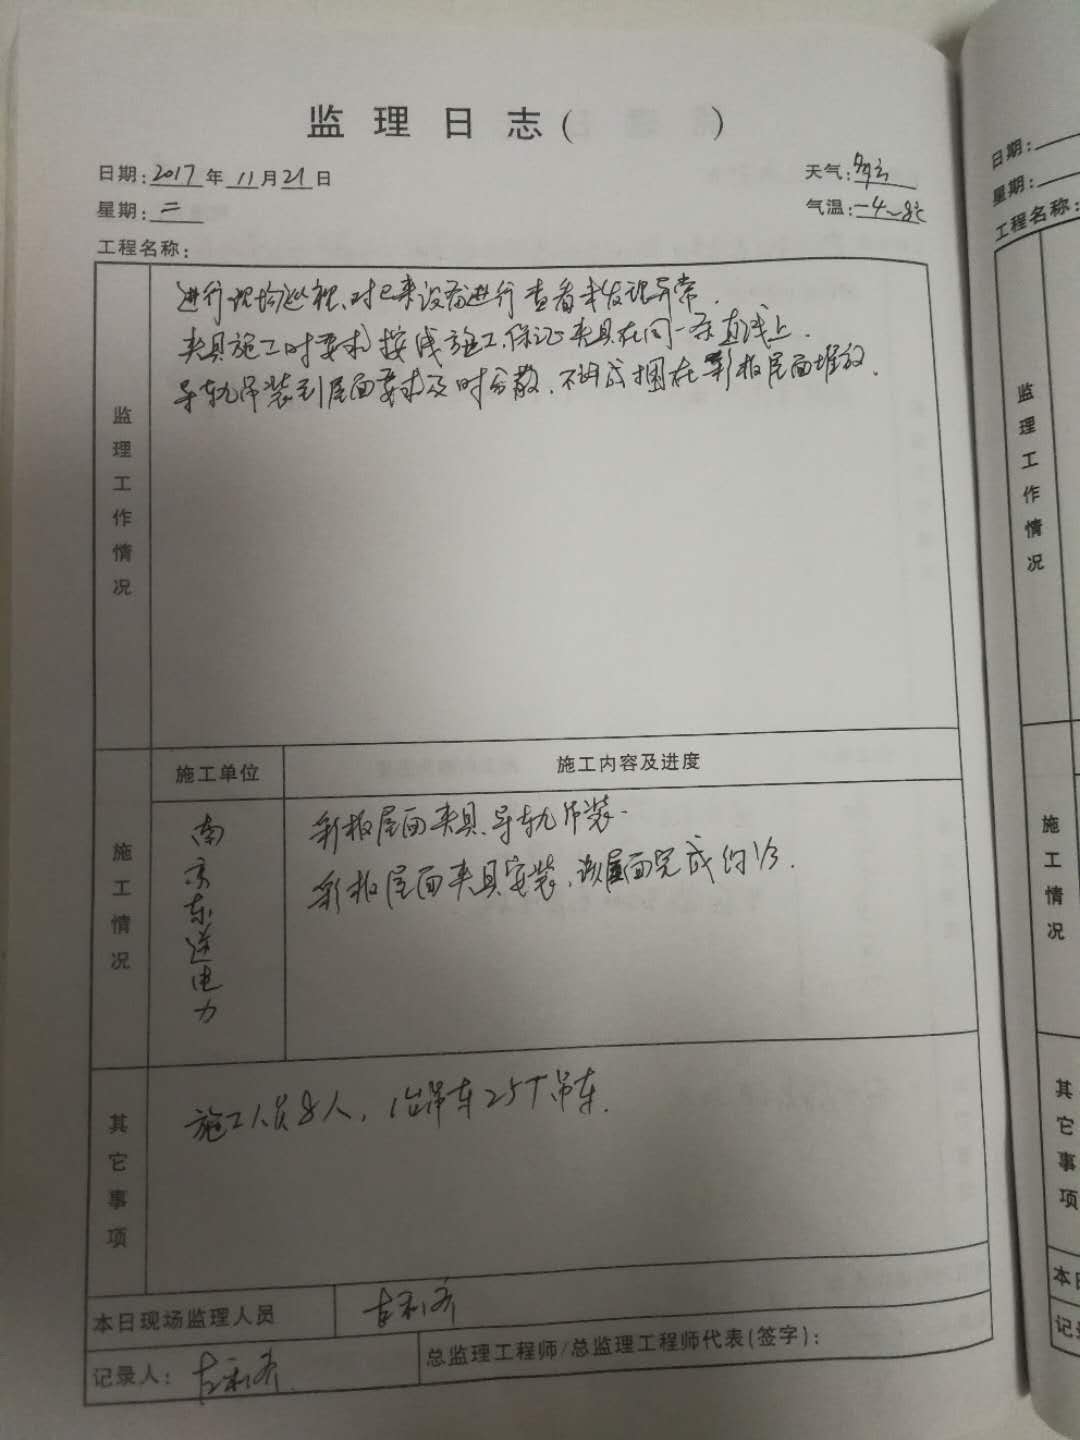 监理日志( )
日期:2017年11月21日
天气:多云
星期:二
气温:-4~8℃
工程名称:
监理工作情况
进行现场巡视、对已来设备进行查看未发现异常.
夹具施工时要求按线施工,保证夹具在同一条直线上.
导轨吊装到屋面要求及时分散.不得成捆在彩板屋面堆放.
施工情况
施工单位
施工内容及进度
南京东送电力
彩板屋面夹具、导轨吊装.
彩板屋面夹具安装,该屋面完成约1/3.
其它事项
施工人员8人,1台吊车25T吊车.
本日现场监理人员
记录人:
总监理工程师/总监理工程师代表(签字):
日期:
星期:
工程名称:
监理工作情况
施工工情况
其它事项
本日
记录